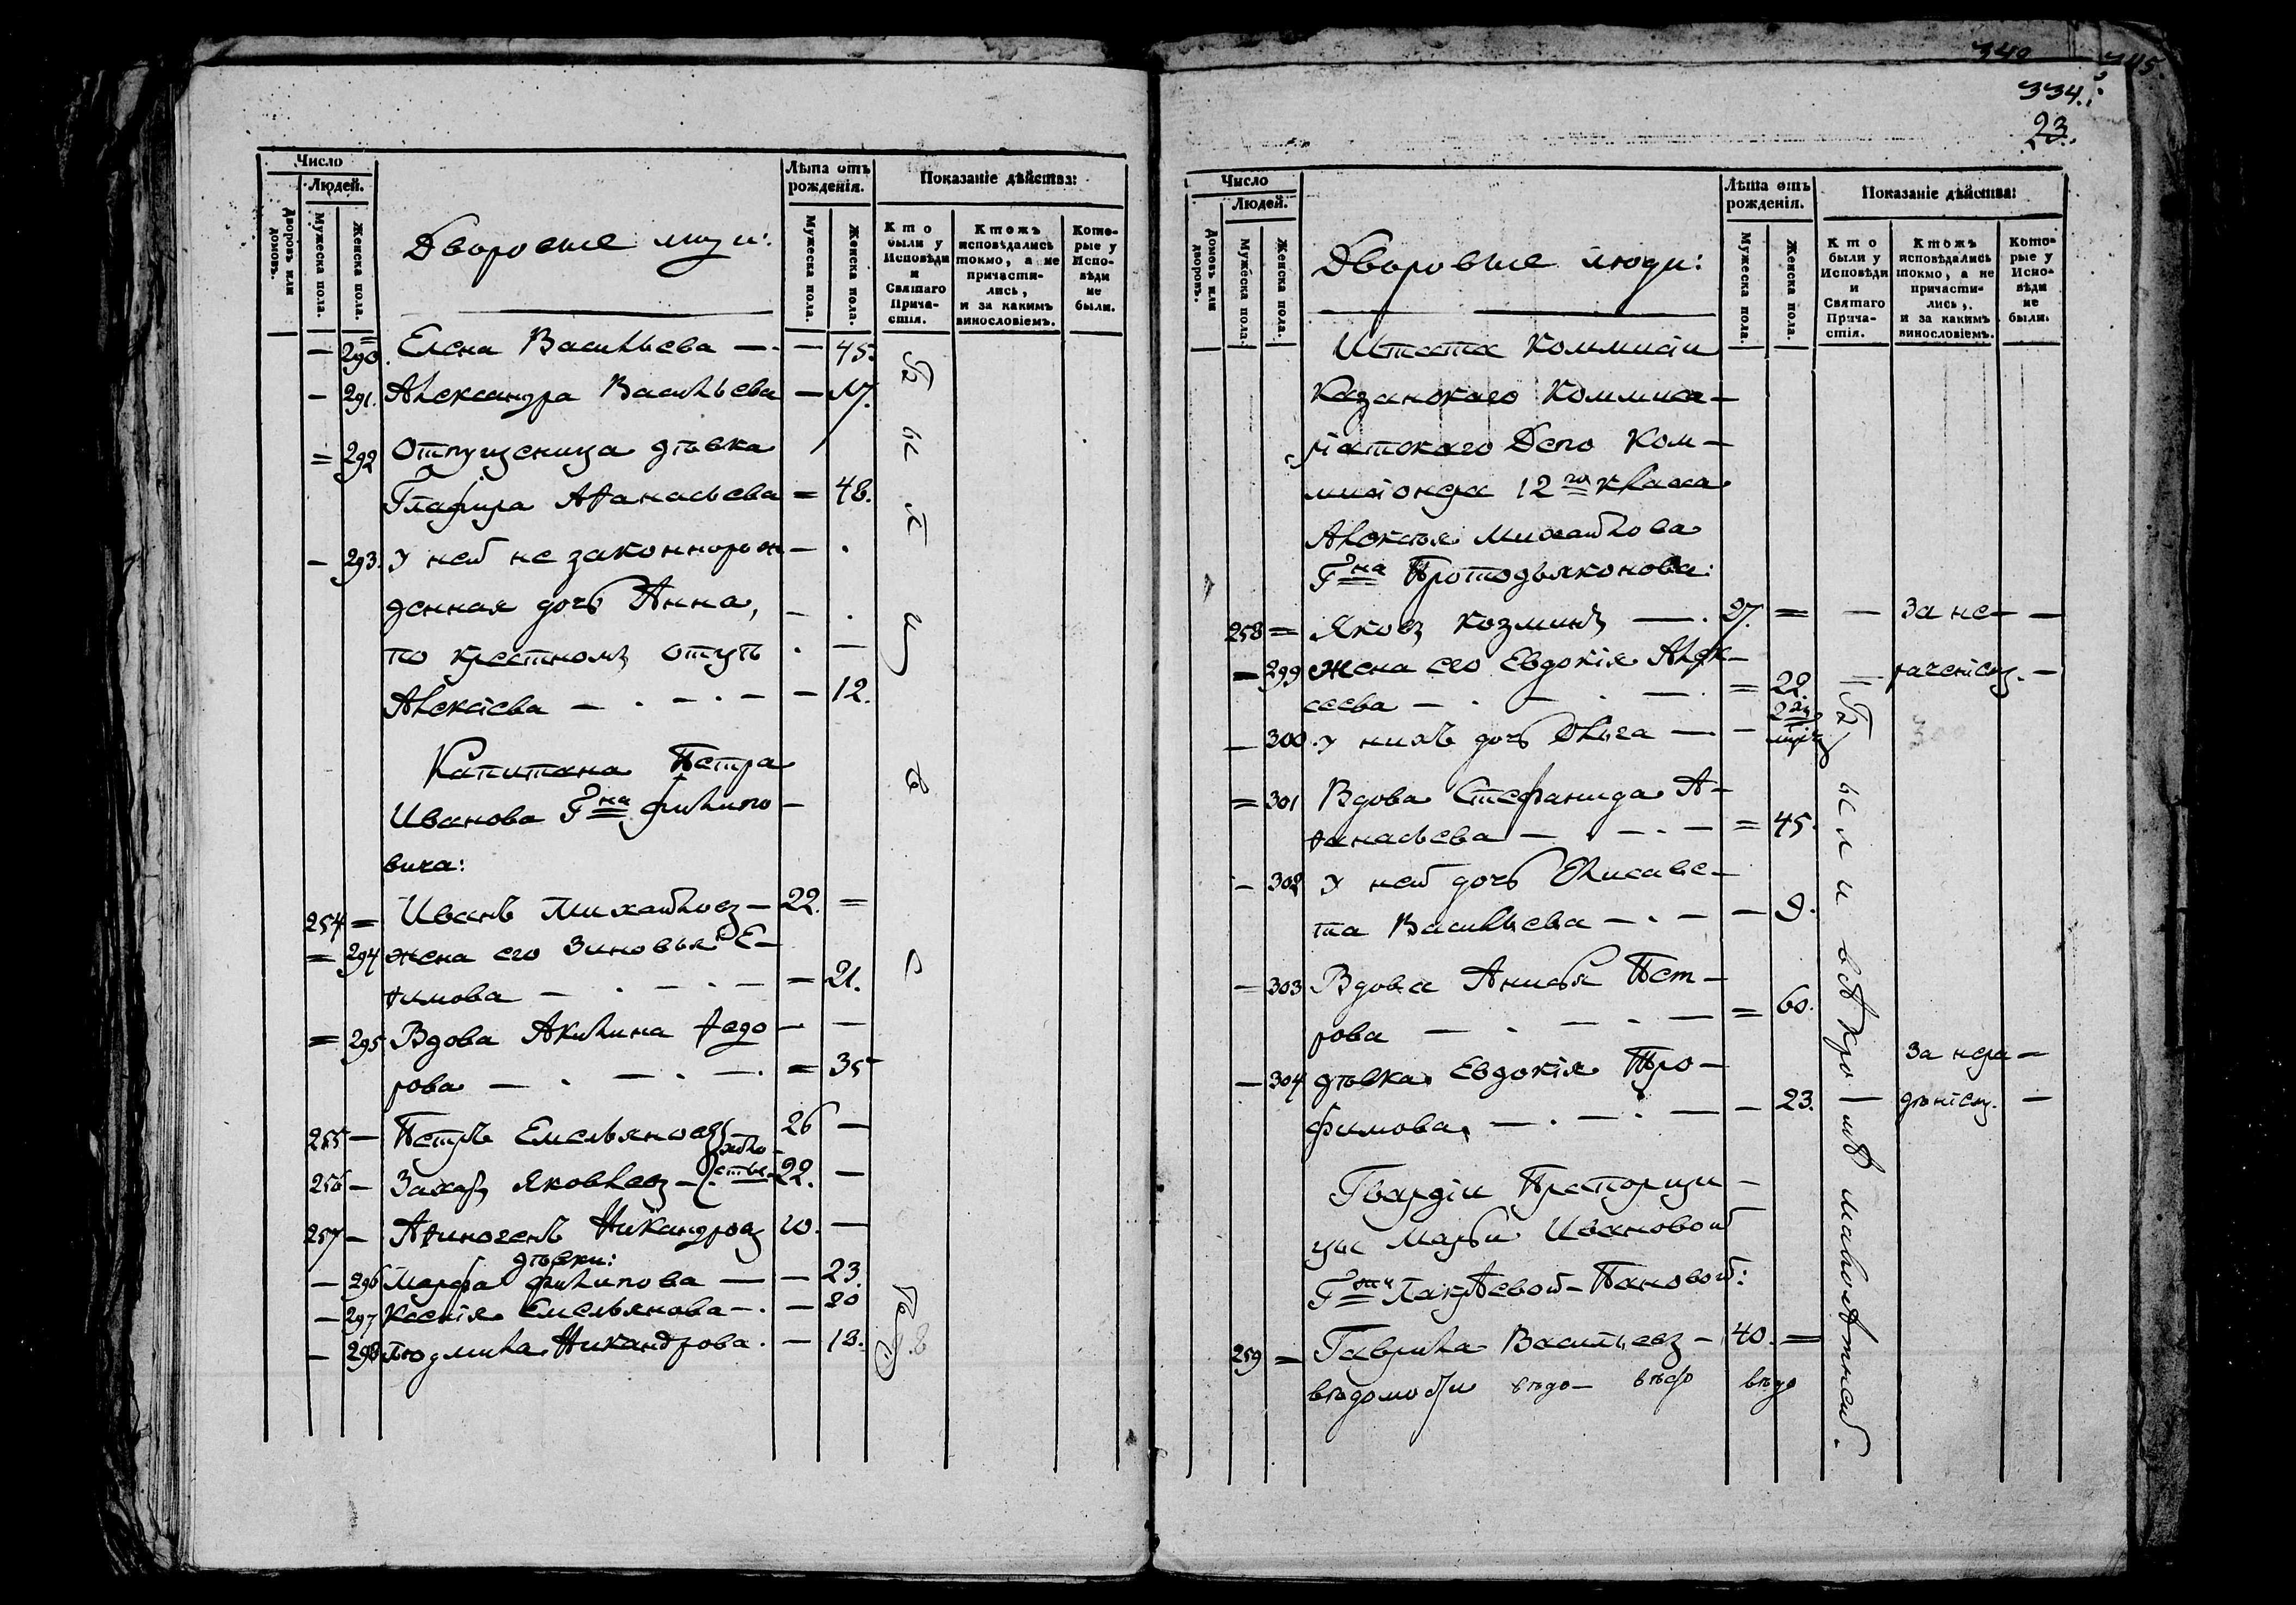 Число
Людей.
Дворовъ или домовъ.
Мужеска пола.
Женска пола.
Дворовые люди:
Лѣта отъ рожденія.
Мужеска пола.
Женска пола.
Показаніе дѣйства:
Кто были у Исповѣди и Святаго Причастія.
Ктожъ исповѣдались токмо, а не причастились, и за какимъ винословіемъ.
Которые у Исповѣди не были.
— 290. Елена Васильева — — 45.
— 291. Александра Васильева — 17.
= 292 Отпущеница дѣвка
Глафира Аѳанасьева = 48.
— 293. У ней не законнорож —
денная дочь Анна, —
по крестномъ отцѣ —
Алексіева — — — 12.
Капитана Петра
Иванова Гна Филипо–
вича:
254 = Иванъ Михайловъ — 22. =
= 294 жена его Зиновья Е–
ѳимова — — = 21.
= 295 Вдова Акилина Ѳедо — —
рова — — — = 35
255 — Петръ Емельяновъ 26 —
холо–
стые
256 — Захаръ Яковлевъ — 22. —
257 — Аѳиногенъ Никандровъ 10. —
дѣвки:
— 296 Марфа Филипова — — 23.
— 297 Ксенія Емельянова — — 20
— 298 Людмила Никандрова. — 13.
340
345.
334.
23.
Число
Людей.
Домовъ или дворовъ.
Мужеска пола.
Женска пола.
Дворовые люди:
Лѣта отъ рожденія.
Мужеска пола.
Женска пола.
Показаніе дѣйства:
Кто были у Исповѣди и Святаго Причастія.
Ктожъ исповѣдались токмо, а не причастились, и за какимъ винословіемъ.
Которые у Исповѣди не были.
Штата Коммисіи
Казанскаго Коммиса–
ріатскаго Депо Ком–
мисіонера 12го класа
Алексѣя Михайлова
Гна Протодьяконова:
258 = Яковъ Козминъ — 27. = — За не– —
— 299 жена его Евдокія Алек–
сеева — — = 22. — раченіемъ. —
— 300. у нихъ дочь Ольга — —
300
= 301 Вдова Стефанида А–
ѳанасьева — — = 45.
— 302 У ней дочь Елисаве–
та Васильева — — — 9.
— 303 Вдова Анисья Пет–
рова — — — = 60.
— 304 дѣвка Евдокія Тро– За нера —
фимова — — — 23. — дѣніемъ. —
Гвардіи Прапорщи–
цы Марьи Ивановой
259 = Гаврила Васильевъ — 40. =
вѣдомости вѣдо– вѣдо вѣдо